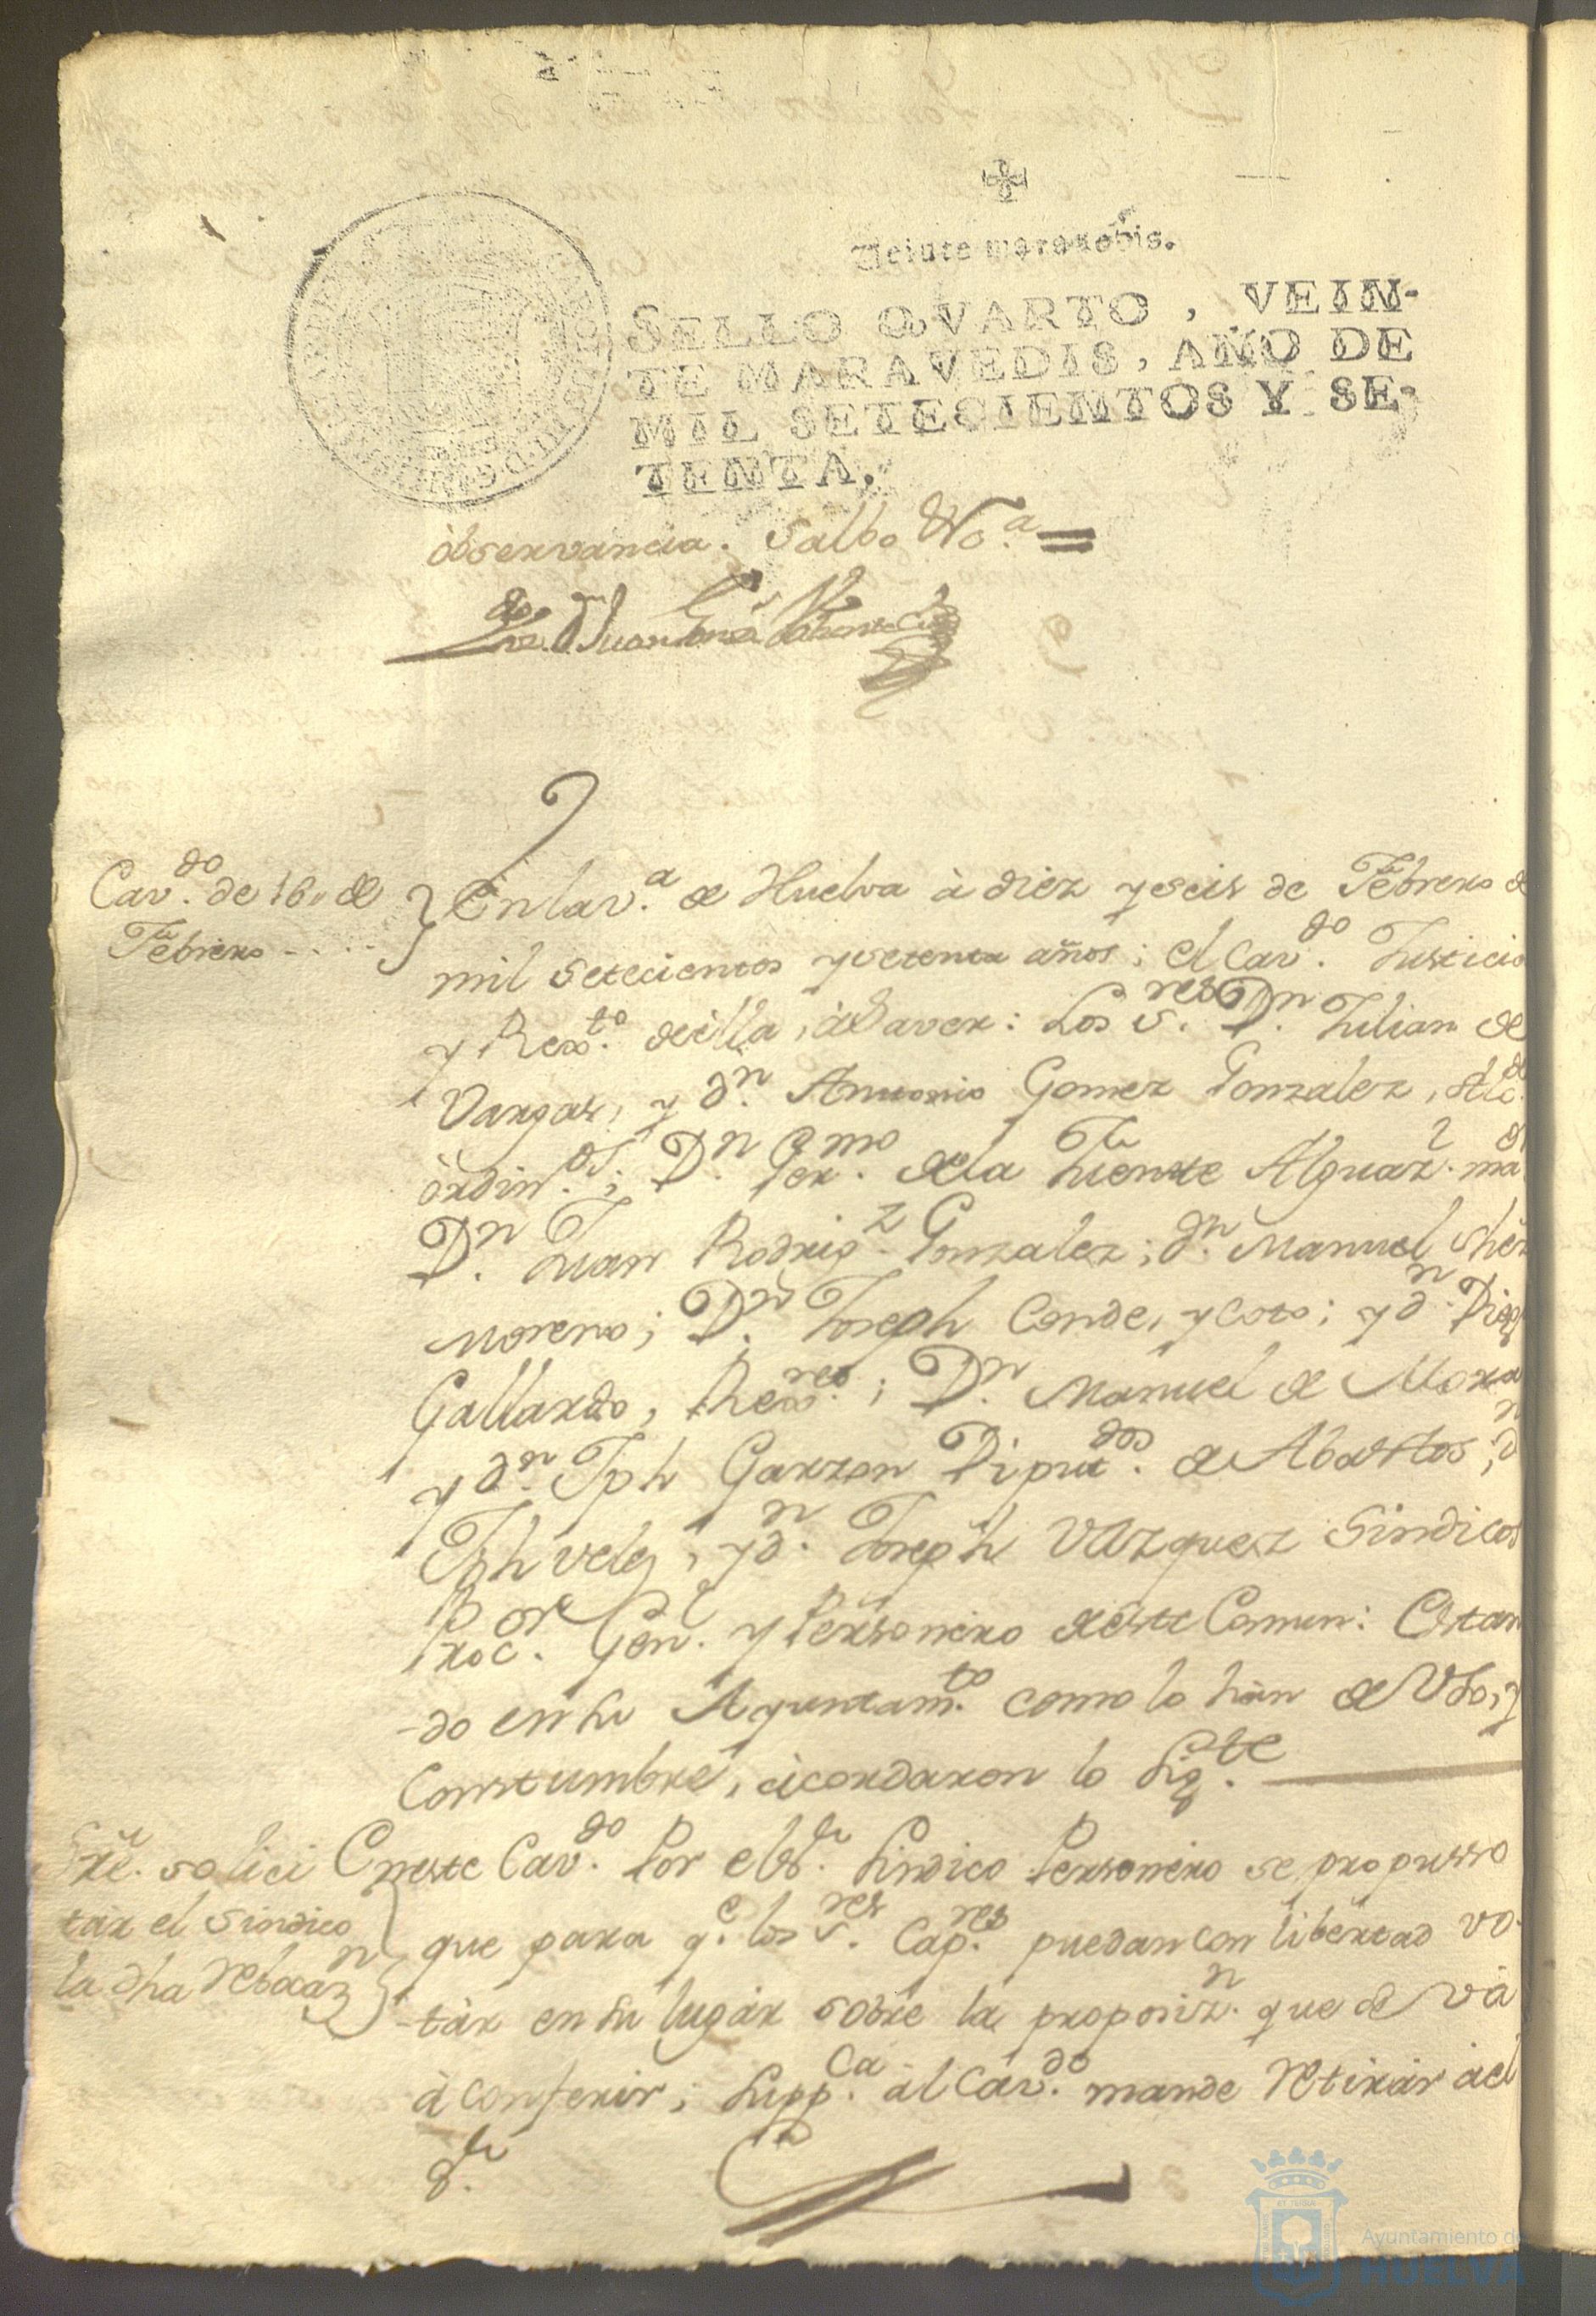 Veinte marauedis.
SELLO QVARTO, VEIN-
TE MARAVEDIS, AÑO DE
MIL SETECIENTOS Y SE-
TENTA.
òbservancia. Salbo &Vo.ª =
Cav.do de 16. de
Febrero - . . .
En la v.ª de Huelva à diez y seis de Febrero de
mil setecientos y setenta años; el Cav.do Justicia
y Rex.to de ella, à Saver: Los S.res D.n Julian de
Vargas, y d.n Antonio Gomez Gonzalez, Alc.des
òrdin.os; D.n Ger.mo de la Fuente Alguaz.l ma.or
D.n Juan Rodrig.z Gonzalez; d.n Manuel Shez
Moreno; D.n Joseph Conde, y Coto; y d.n Diego
Gallardo, Rex.res; D.n Manuel de Mora
y d.n Jph Garzon Diput.dos de Abastos; d.n
Jph velez, y d.n Joseph Vazquez Sindicos
Proc.or Gen.l y Personero de este Comun: Estan
-do en su Ayuntam.to como lo hàn de Vso, y
Constumbre, àcordaron lo sig.te
Sre. solici
tàr el Sindico
la dha Rebocaz.n
En este Cav.do Por el S.r Sindico Personero se propusso
que para q.e los S.res Cap.res puedan con libertad vo-
tàr en su lugàr sobre la proposiz.n que se và
à conferir; supp.ca àl Cav.do mande Retiràr àel
S.r
Ayuntamiento de
HUELVA